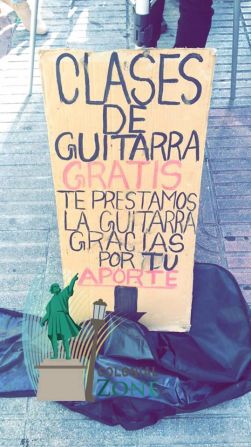 CLASES
DE
GUITARRA
GRATIS
TE PRESTAMOS
LA GUITARRA
GRACIAS
POR TU
APORTE
COLUMBUS
ZONE